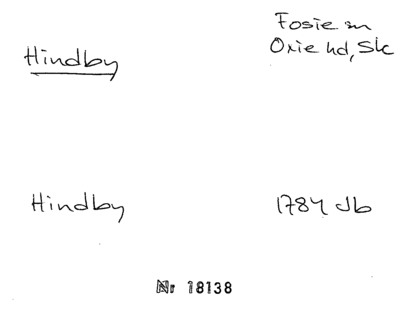 Hindby
Fosie sn
Oxie hd, Sk
Hindby
1784 Jb
Nr 18138